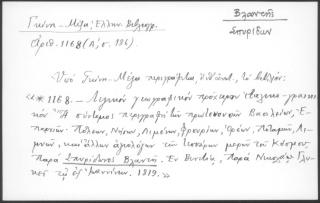 Γκίνη - Μέξα, Ἑλλην. Βιβλιογρ.
Ἀριθ. 1168 (Α, σ. 186)
Βλαντῆς
Σπυρίδων
Ὑπὸ Γκίνη - Μέξα περιγράφεται, τὸ βιβλίον:
«* 1168. – Λεξικὸν γεωγραφικὸν πρόχειρον Ἰταλικο-γραικι-
κὸν Ἢ σύντομος περιγραφὴ τῶν πρωτευουσῶν Βασιλειῶν, Ἐ-
παρχιῶν Πόλεων, Νήσων, Λιμένων, Φρουρίων, Ὀρέων, Ποταμῶν, Λι-
μνῶν, καὶ ἄλλων ἀξιολόγων τῶν τεσσάρων μερῶν τοῦ Κόσμου,
παρὰ Σπυρίδωνος Βλαντῆ. Ἐν Βενετίᾳ, Παρὰ Νικολάῳ Γλυ-
κεῖ τῷ ἐξ Ἰωαννίνων. 1819.»